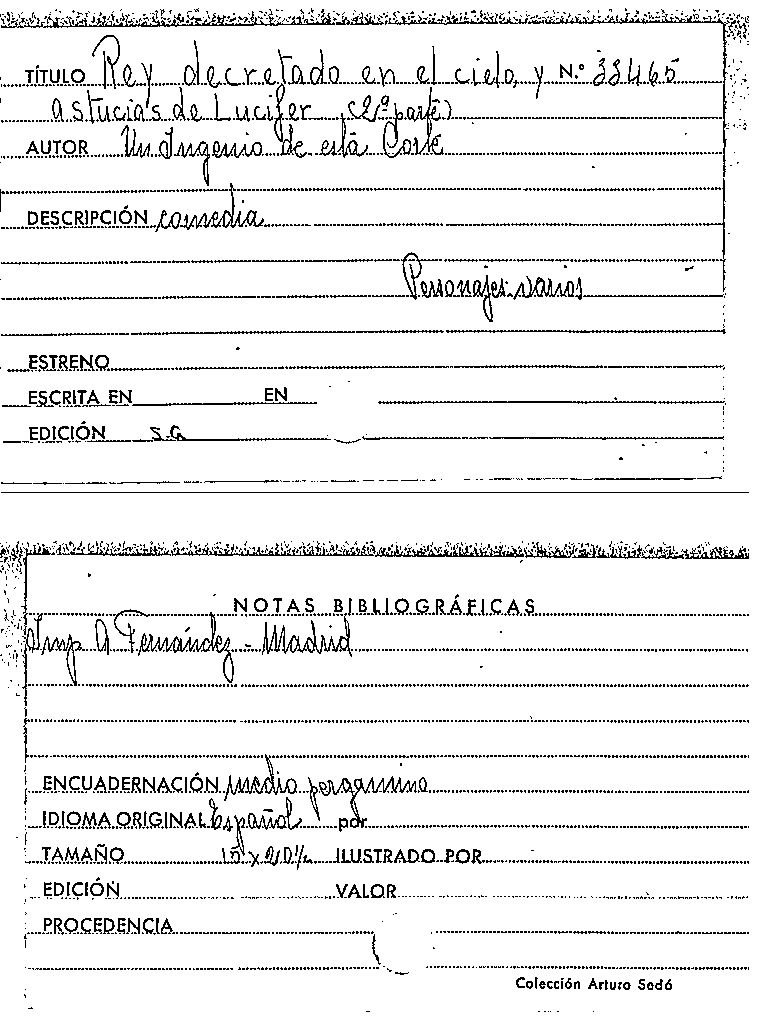 TÍTULO Rey decretado en el cielo, y N.º 33465
astucias de Lucifer (2ª parte)
AUTOR Un Ingenio de esta Corte
DESCRIPCIÓN comedia
Personajes: varios
ESTRENO
ESCRITA EN EN
EDICIÓN S.A.
NOTAS BIBLIOGRÁFICAS
Imp A Fernández - Madrid
ENCUADERNACIÓN medio pergamino
IDIOMA ORIGINAL Español por
TAMAÑO ILUSTRADO POR
EDICIÓN VALOR
PROCEDENCIA
Colección Arturo Sedó